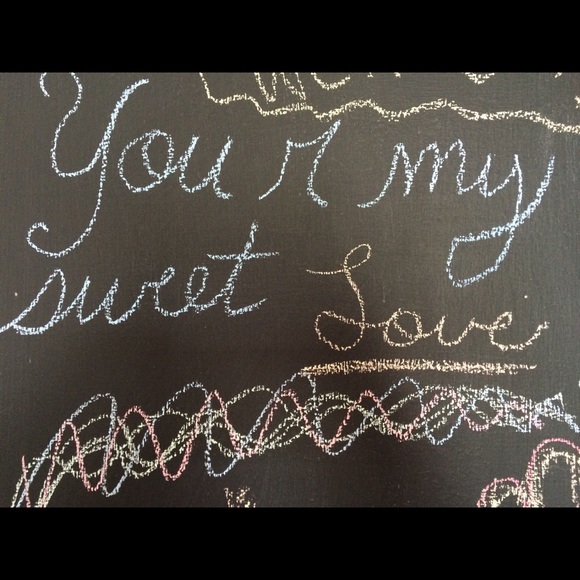 You r my
sweet Love